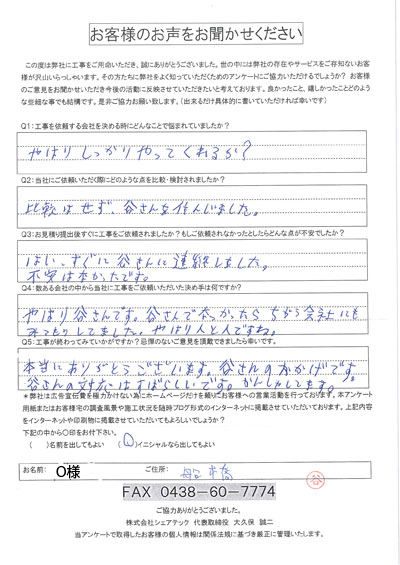 お客様のお声をお聞かせください
この度は弊社に工事をご用命いただき、誠にありがとうございました。世の中には弊社の存在やサービスをご存知ないお客
様が沢山いらっしゃいます。その方たちに弊社をよく知っていただくためのアンケートにご協力いただけるでしょうか？ お客様
のご意見をお聞かせいただき今後の活動に反映させていただきたいと考えております。良かったこと、嬉しかったことどのよう
な些細な事でも結構です。是非ご協力お願い致します。（出来るだけ具体的に書いていただければ幸いです）
Q1：工事を依頼する会社を決める時にどんなことで悩まれていましたか？
やはりしっかりやってくれるか？
Q2：当社にご依頼いただく際にどのような点を比較・検討されましたか？
比較はせず、谷さんを信じました。
Q3：お見積り提出後すぐに工事をご依頼されましたか？もしご依頼されなかったとしたらどんな点が不安でしたか？
はい、すぐに谷さんに連絡しました。
不安は本かったです。
Q4：数ある会社の中から当社に工事をご依頼いただいた決め手は何ですか？
やはり谷さんです。谷さんで本かったら ちがう会社にも
みつもりしてました。やはり人と人ですね。
Q5：工事が終わってみていかがですか？忌憚のないご意見を頂戴できましたら幸いです。
本当にありがとうございます。谷さんのおかげです。
谷さんの対応はすばらしいです。かんしゃしてます。
＊弊社は広告宣伝費を極力かけない為にホームページだけを頼りにお客様への営業活動を行っております。本アンケート
用紙またはお客様宅の調査風景や施工状況を随時ブログ形式のインターネットに掲載させていただいております。上記内容
をインターネットや印刷物に掲載させていただいてもよろしいでしょうか？
下記の中から〇印をお付下さい。
（　）名前を出してもよい （〇）イニシャルなら出してもよい
お名前： O様 ご住所： 船橋
谷
FAX 0438-60-7774
ご協力ありがとうございました。
株式会社シェアテック 代表取締役 大久保 誠二
当アンケートで取得したお客様の個人情報は関係法規に基づき厳正に管理いたします。